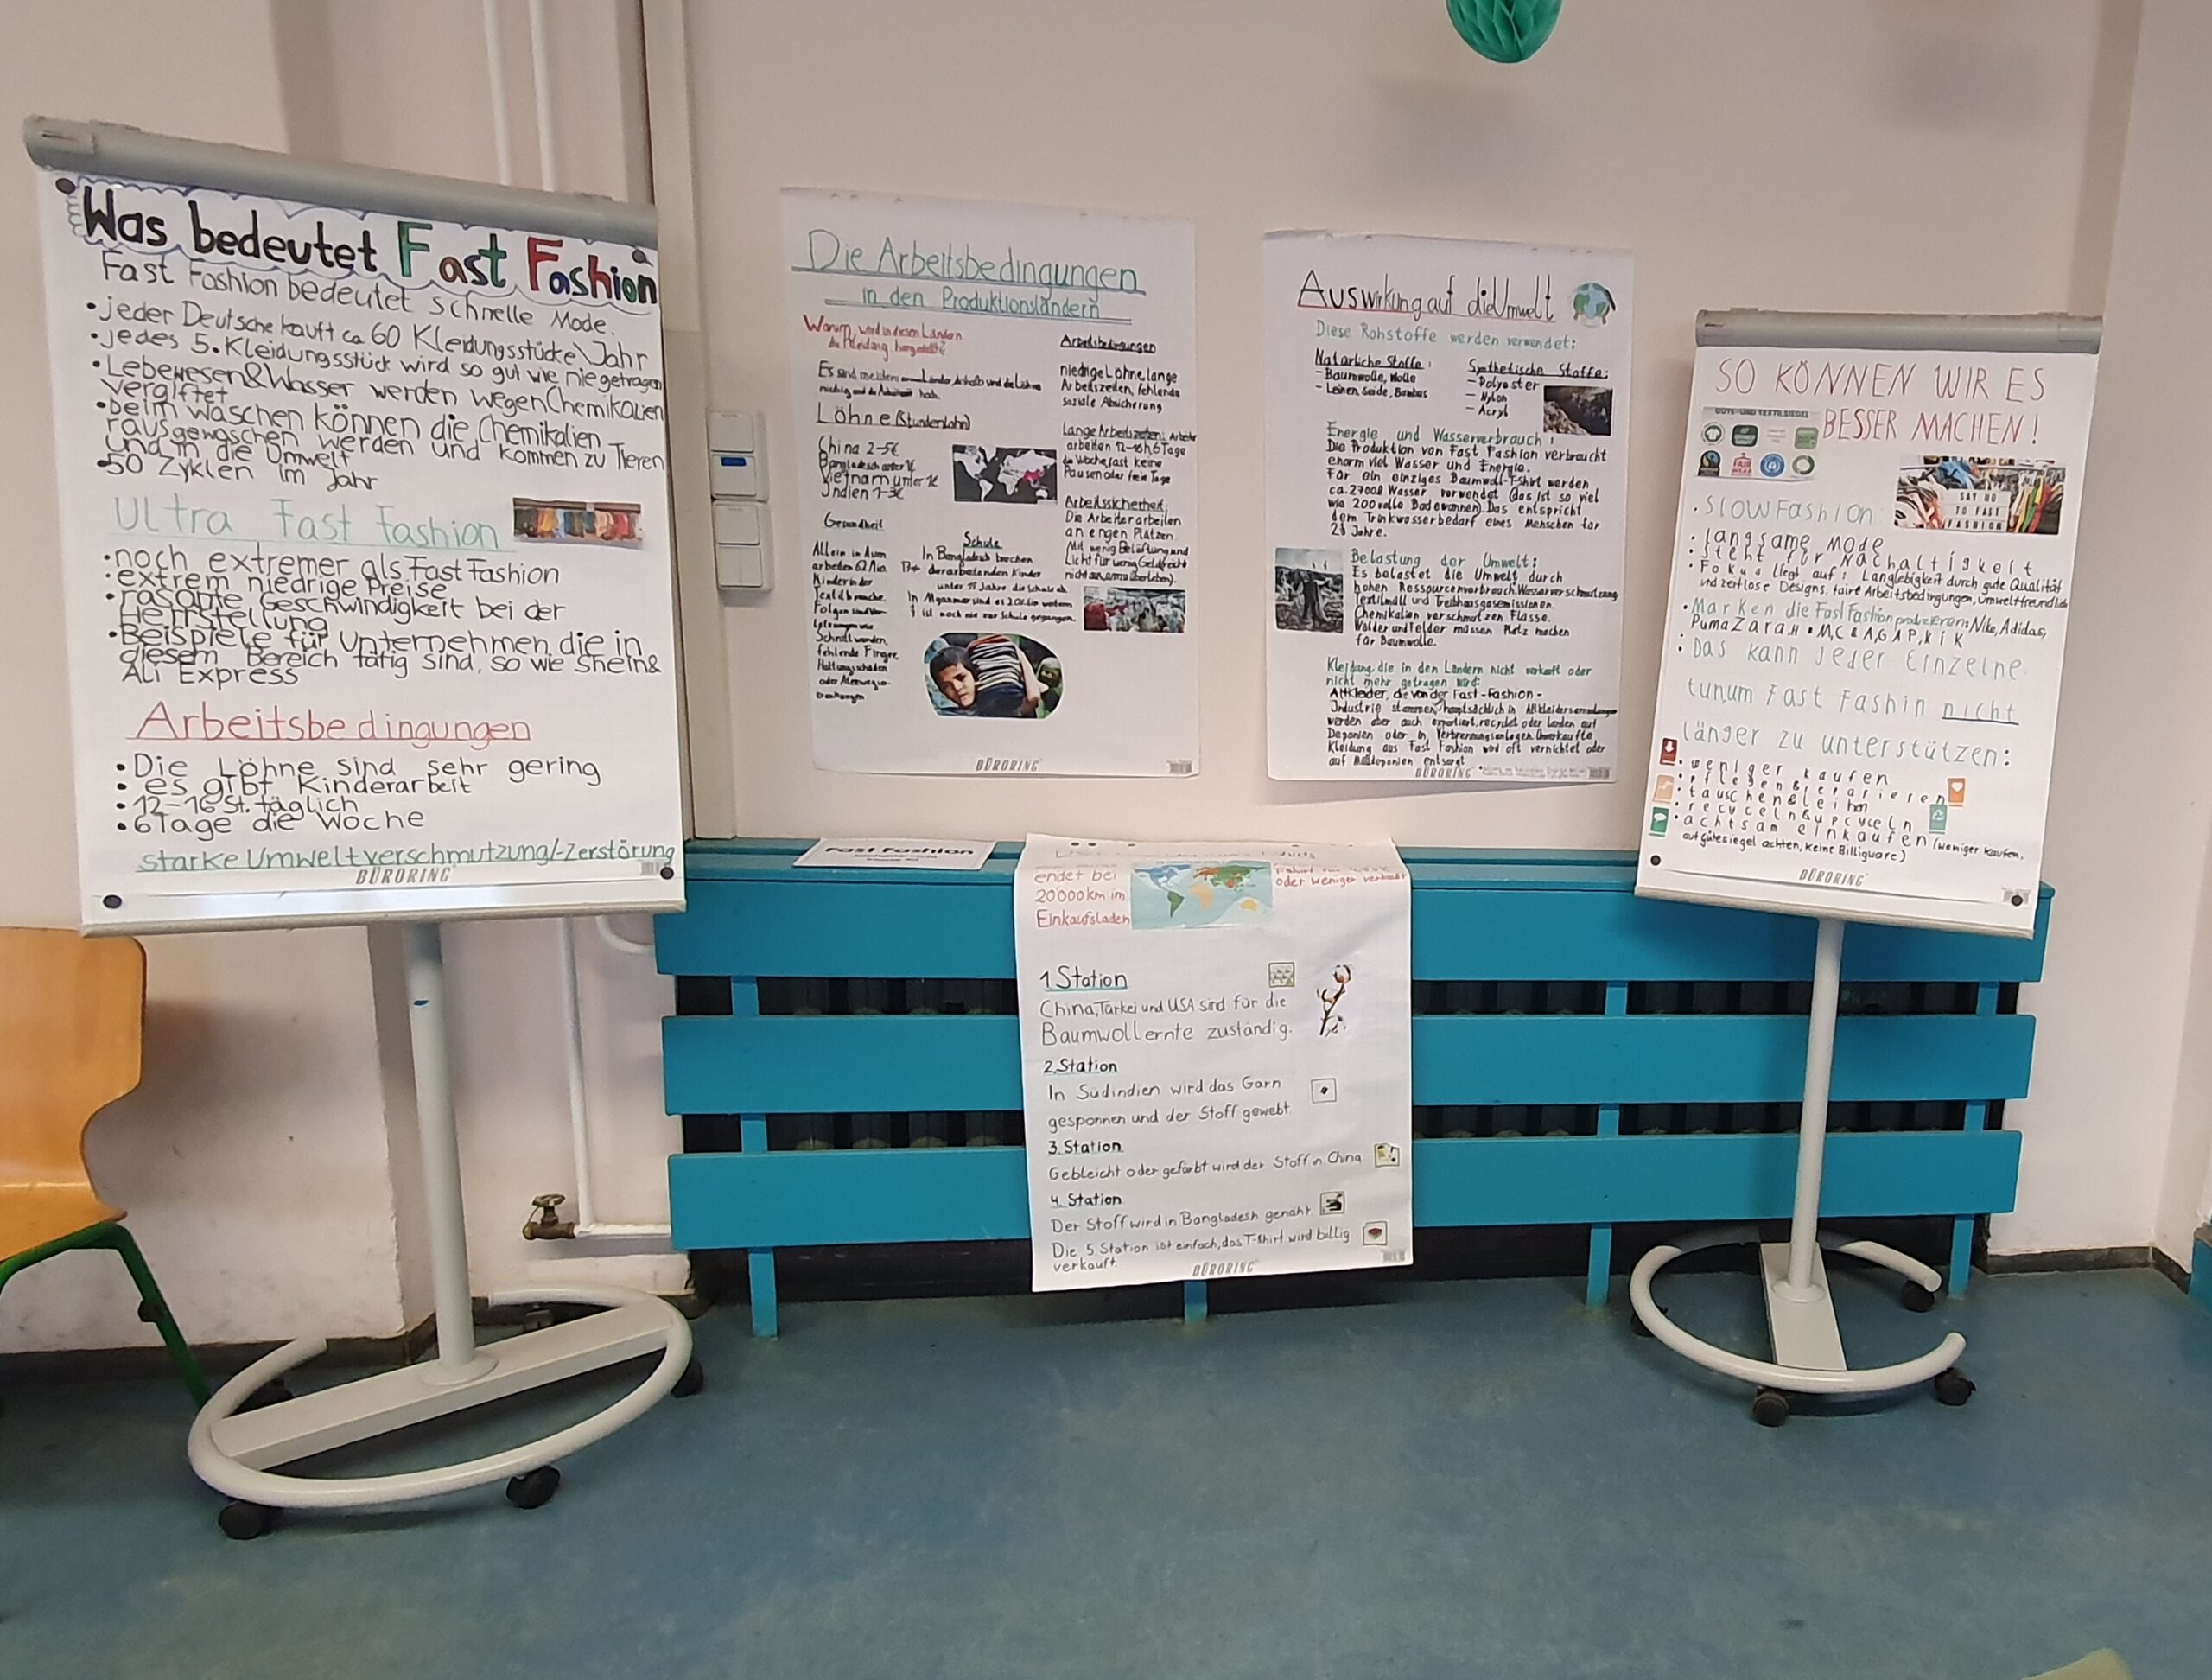 Was bedeutet Fast Fashion
Fast Fashion bedeutet schnelle Mode.
• jeder Deutsche kauft ca 60 Kleidungsstücke\Jahr
• jedes 5. Kleidungsstück wird so gut wie nie getragen
• Lebewesen & Wasser werden wegen Chemikalien
vergiftet
• beim waschen können die Chemikalien
rausgewaschen werden und kommen zu Tieren
und in die Umwelt
• 50 Zyklen im Jahr
Ultra Fast Fashion
• noch extremer als Fast Fashion
• extrem niedrige Preise
• rasante Geschwindigkeit bei der
Herrstellung
• Beispiele für Unternehmen die in
diesem Bereich tätig sind, so wie Shein &
Ali Express
Arbeitsbedingungen
• Die Löhne sind sehr gering
• es gibt Kinderarbeit
• 12-16 St. täglich
• 6 Tage die Woche
starke Umweltverschmutzung/-Zerstörung
BÜRORING
Die Arbeitsbedingungen
in den Produktionsländern
Warum wird in diesen Ländern
die Kleidung hergestellt?
niedrig und die Arbeitszeit hoch.
Löhne (Stundenlohn)
China 2-5€
Bangladesch unter 1€
Vietnam unter 1€
Indien 1-3€
Gesundheit
Allein in Asien
arbeiten 62 Mio.
Kinder in der
Textilbranche.
Folgen sind
Schnittwunden,
fehlende Finger,
Haltungsschäden
oder Atemwegs-
erkrankungen
Schule
In Bangladesch brechen
der arbeitenden Kinder
unter 15 Jahre die Schule ab
ist noch nie zur Schule gegangen.
Arbeitsbedingungen
niedrige Löhne, lange
Arbeitszeiten, fehlende
soziale Absicherung
Lange Arbeitszeiten: Arbeiter
arbeiten 12-16h, 6 Tage
die Woche, fast keine
Pausen oder freie Tage
Arbeitssicherheit:
Die Arbeiter arbeiten
an engen Plätzen.
Mit wenig Belüftung und
Licht für wenig Geld (reicht
nicht aus um zu überleben).
BÜRORING
Auswirkung auf die Umwelt
Diese Rohstoffe werden verwendet:
Natürliche Stoffe:
- Baumwolle, Wolle
- Leinen, Seide, Bambus
Synthetische Stoffe:
- Polyester
- Nylon
- Acryl
Energie und Wasserverbrauch:
Die Produktion von Fast Fashion verbraucht
enorm viel Wasser und Energie.
Für ein einziges Baumwoll-T-Shirt werden
ca. 2700l Wasser verwendet (das ist so viel
wie 200 volle Badewannen). Das entspricht
dem Trinkwasserbedarf eines Menschen für
2½ Jahre.
Belastung der Umwelt:
Es belastet die Umwelt durch
hohen Ressourcenverbrauch, Wasserverschmutzung,
Textilmüll und Treibhausgasemissionen.
Chemikalien verschmutzen Flüsse.
Wälder und Felder müssen Platz machen
für Baumwolle.
Kleidung die in den Ländern nicht verkauft oder
nicht mehr getragen wird:
Altkleider, die von der Fast-Fashion-
Industrie stammen, hauptsächlich in Altkleidersammlungen
werden aber auch exportiert, recycelt oder landen auf
Deponien oder in Verbrennungsanlagen. Unverkaufte
Kleidung aus Fast Fashion wird oft vernichtet oder
auf Mülldeponien entsorgt
BÜRORING
SO KÖNNEN WIR ES
BESSER MACHEN!
GÜTE- UND TEXTILSIEGEL
SAY NO
TO FAST
FASHION
• SlowFashion
• langsame Mode
• steht für Nachhaltigkeit
• Fokus liegt auf: Langlebigkeit durch gute Qualität
und zeitlose Designs, faire Arbeitsbedingungen, umweltfreundlich
• Marken die Fast Fashion produzieren: Nike, Adidas,
Puma Zara H&M, C&A, GAP, KiK
• Das kann jeder Einzelne
tun um Fast Fashin nicht
länger zu unterstützen:
• weniger kaufen
• pflegen & reparieren
• tauschen & leihen
• recyceln & upcyceln
• achtsam einkaufen (weniger kaufen,
auf gütesiegel achten, keine Billigware)
BÜRORING
Fast Fashion
endet bei
20000km im
Einkaufsladen
oder weniger verkauft
1 Station
China, Türkei und USA sind für die
Baumwollernte zuständig.
2. Station
In Südindien wird das Garn
gesponnen und der Stoff gewebt.
3. Station
Gebleicht oder gefärbt wird der Stoff in China
4. Station
Der Stoff wird in Bangladesh genäht.
Die 5. Station ist einfach, das T-Shirt wird billig
verkauft.
BÜRORING